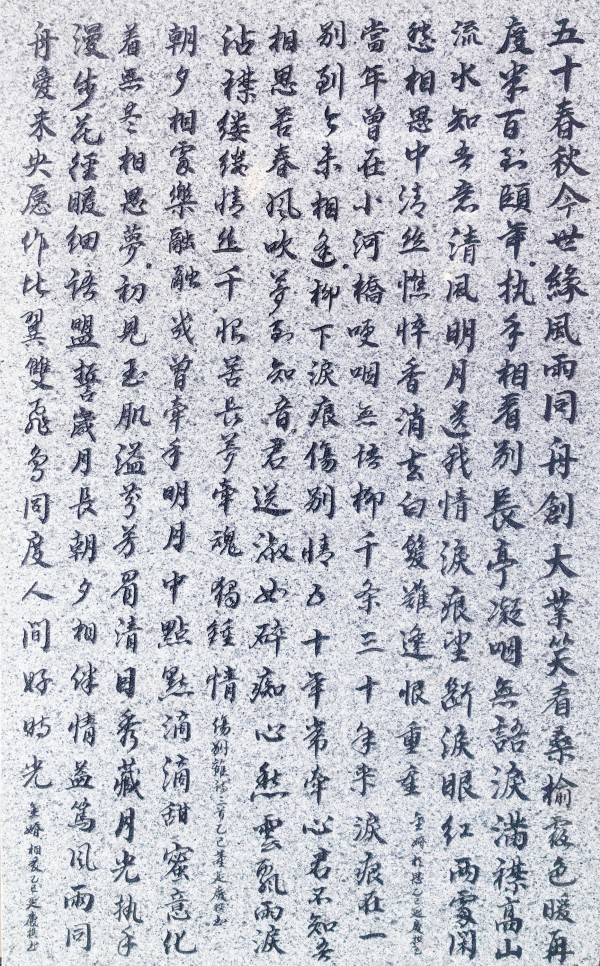 五十春秋今世緣風雨同舟創大業笑看桑榆霞色暖再
度米百到頤年执手相看别長亭凝咽無語淚滿襟高山
流水知吾意清风明月送我情淚痕望断淚眼红两處閑
愁相思中清丝憔悴香消去白髮難逢恨重重
當年曾在小河橋哽咽無语柳千条三十年来淚痕在一
别到今未相逢柳下淚痕傷别情五十年常牵心君不知吾
相思苦春风吹梦到知音君送淑女碎痴心愁雲飘雨淚
沾襟缕缕情丝千恨苦长梦牵魂獨鍾情
朝夕相處樂融融我曾牵手明月中點點滴滴甜蜜意化
着無尽相思夢初見玉肌溢芬芳眉清目秀藏月光执手
漫步花徑暖细语盟誓歲月長朝夕相伴情益篤风雨同
舟愛未央愿作比翼雙飛鸟同度人间好時光